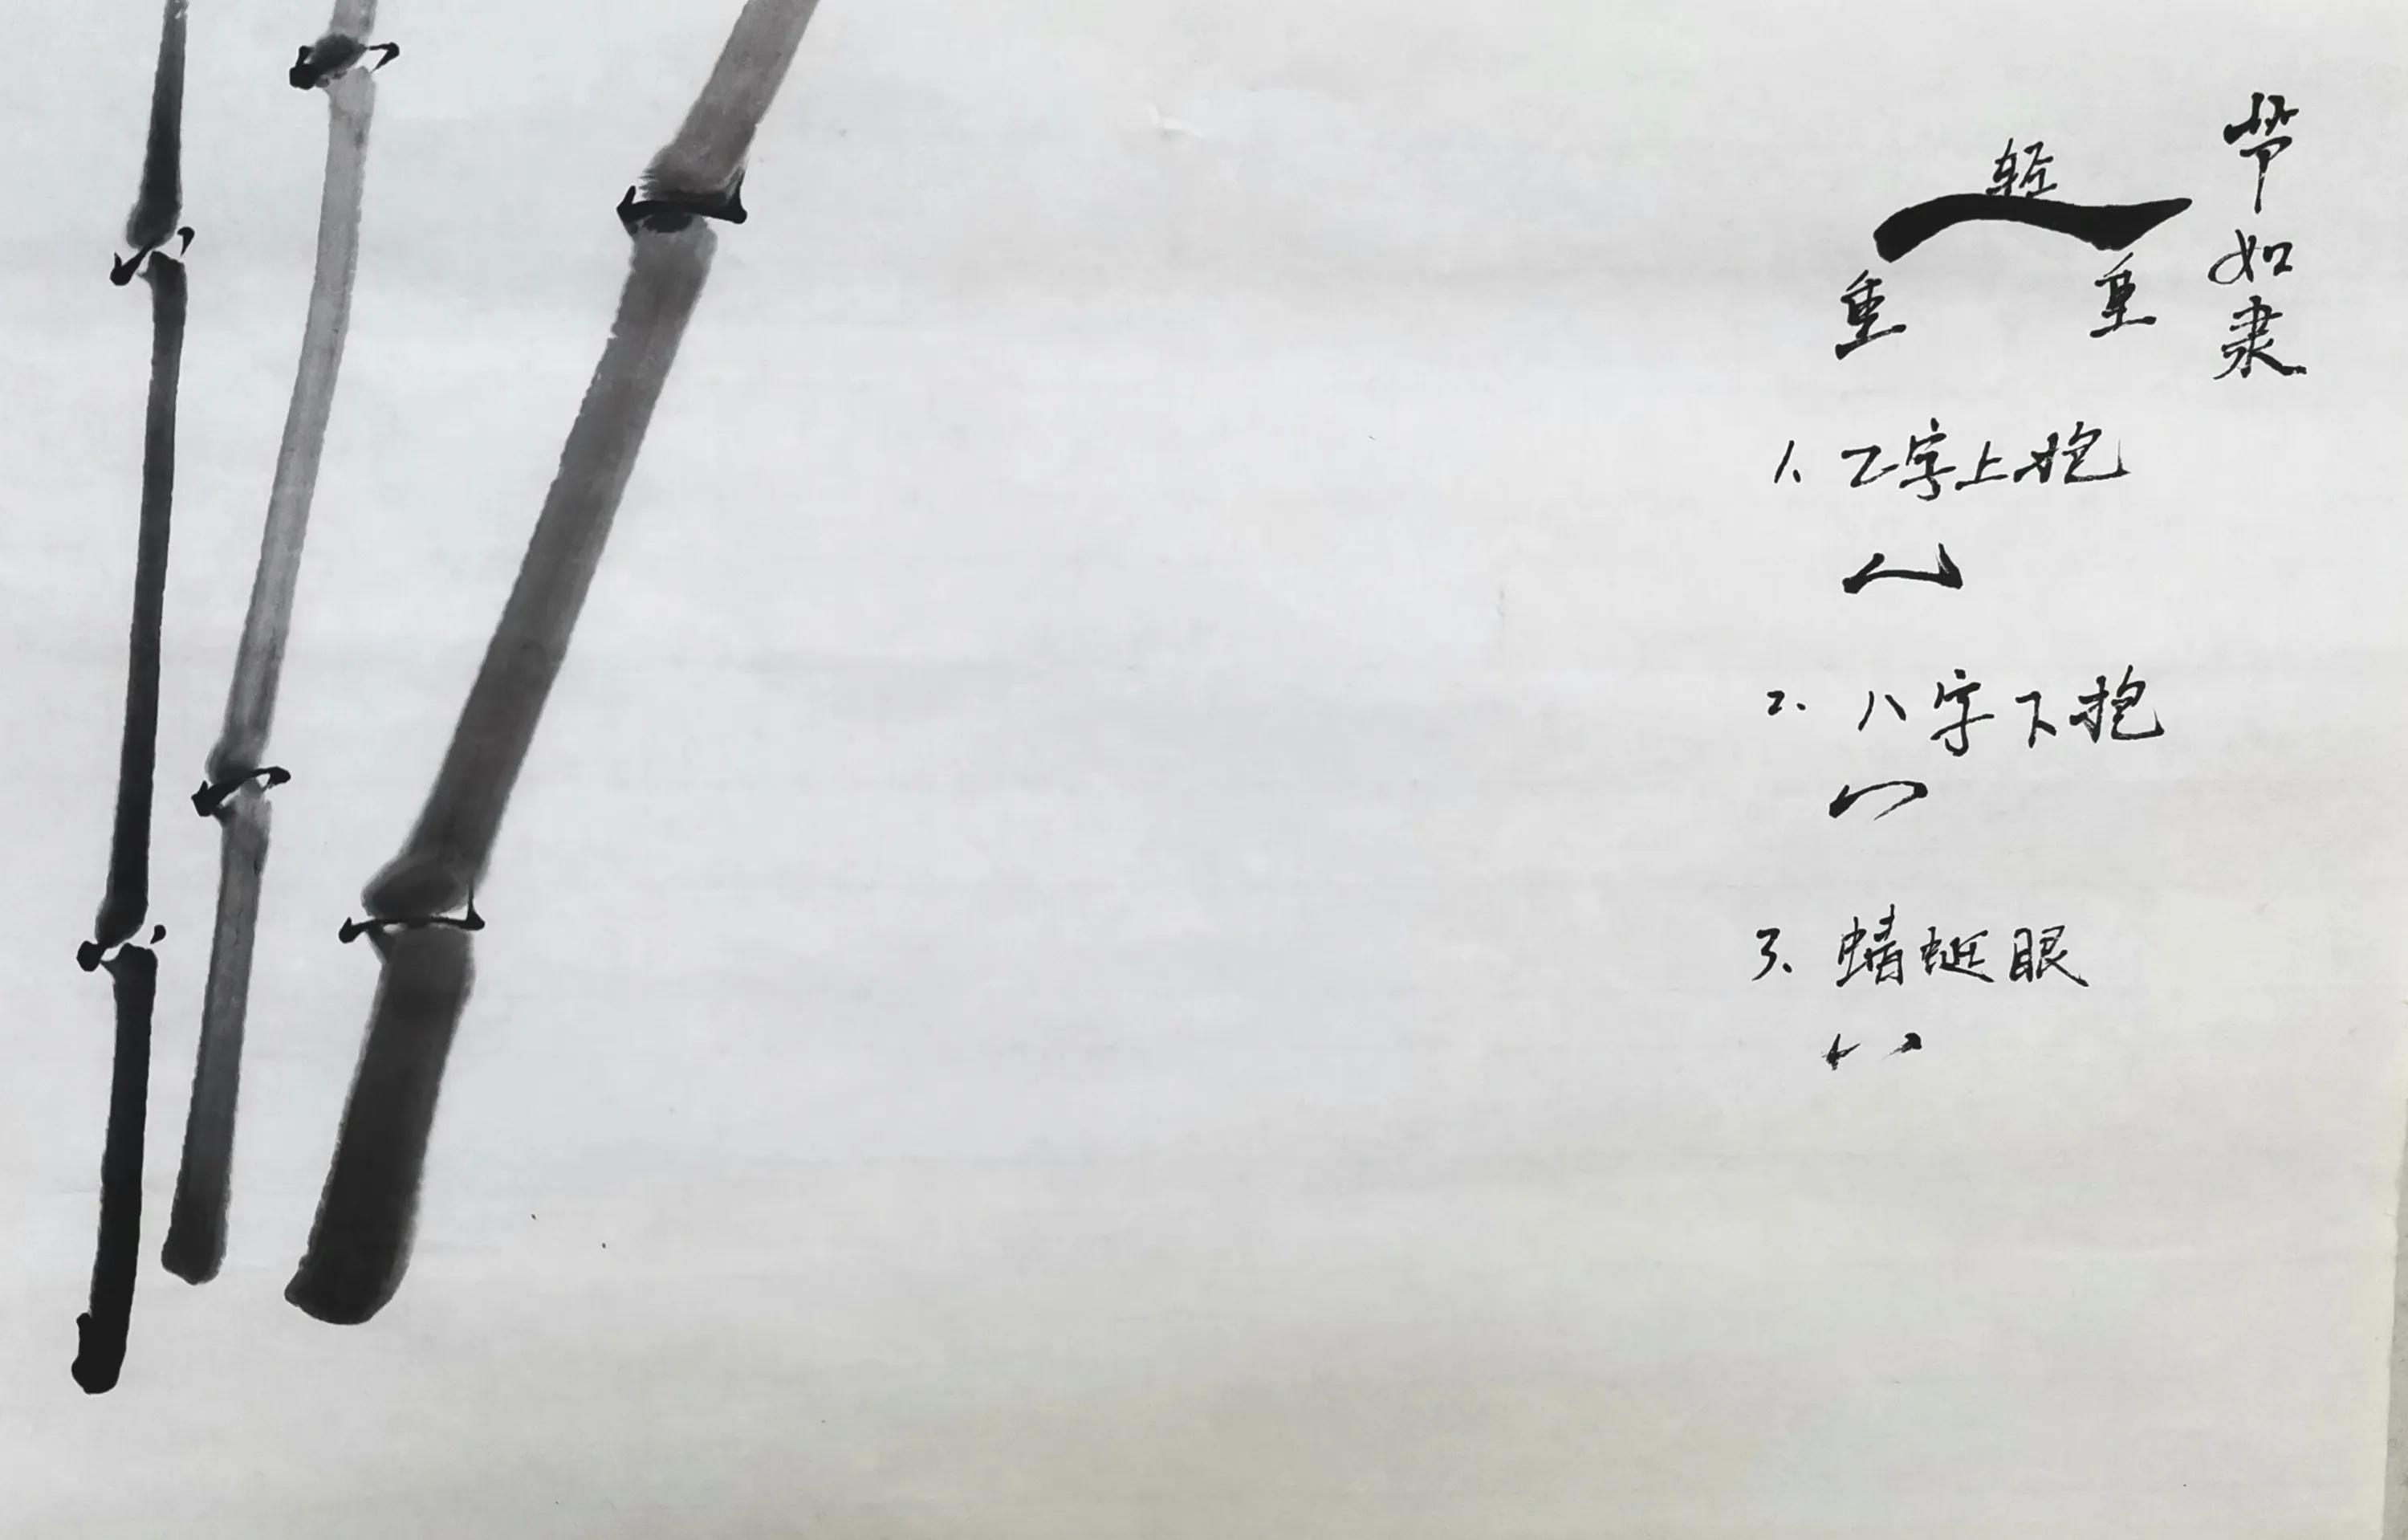 节如隶
轻
重 重
1、乙字上抱
2、八字下抱
3、蜻蜓眼